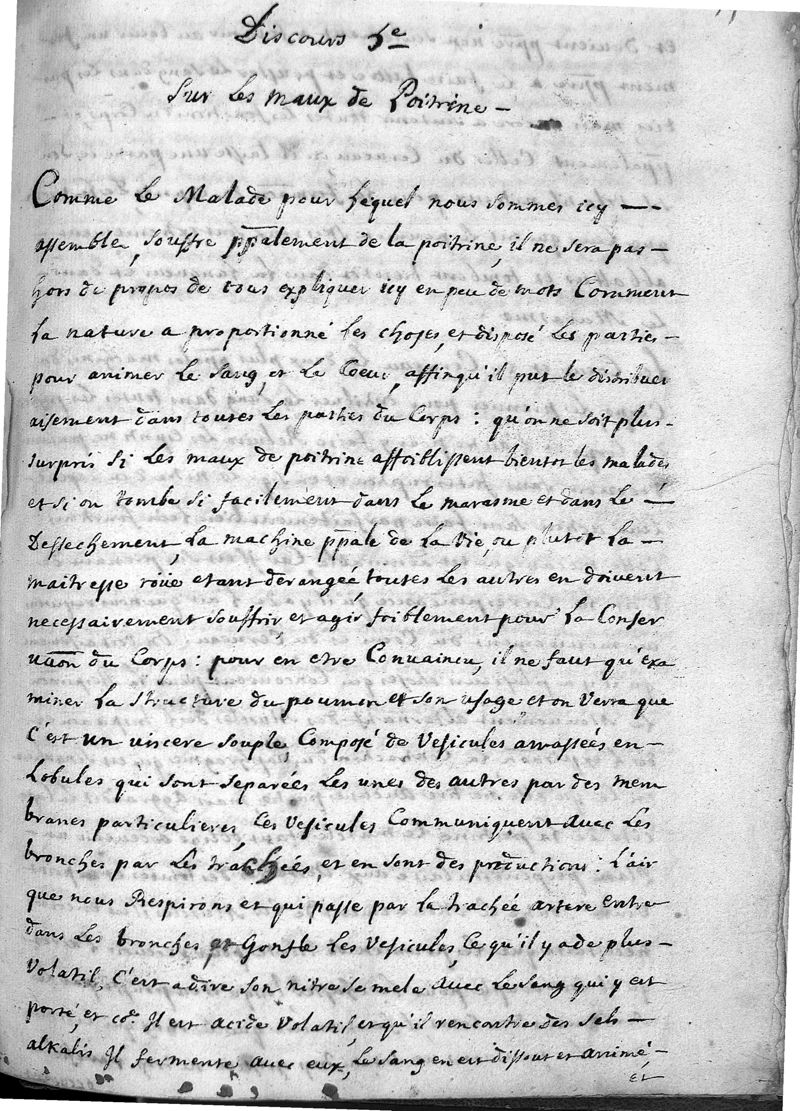 Discours 5e
Sur Les maux de Poitrine -
Comme Le Malade pour Lequel nous sommes icy - -
assemblez, souffre ppalement de la poitrine, il ne sera pas -
hors de propos de vous expliquer icy en peu de mots Comment
La nature a proportionné les choses, et disposé Les parties -
pour animer Le Sang, et Le Coeur, affinqu'il put le distribuer
aisement dans toutes Les parties du Corps : qu'on ne soit plus -
surpris si Les maux de poitrine affoiblissent bientot les malades,
et si on tombe si facilement dans Le marasme et dans Le -
Dessechement, La machine ppale de La Vie, ou plutot La -
maitresse roüe etant derangée, toutes Les autres en doivent
necessairement souffrir, et agir foiblement pour La Conser
uaon du Corps : pour en etre Conuaincu, il ne faut qu'exa
miner La Structure du poumon et son usage et on Verra que
C'est un viscere souple, Composé de Vesicules amassées en -
Lobules qui sont separées Les unes des autres par des mem
branes particulieres, Ces Vesicules Communiquent avec Les
bronches par Les trachées, et en sont des productions : L'air
que nous Respirons et qui passe par la trachée artere entre
dans Les bronches, et Gonfle Les Vesicules, Ce qu'il y a de plus -
Volatil, C'est adire son nitre se mele avec Le Sang qui y est
porté, et co.e Il est acide Volatil, et qu'il rencontre des Sels -
alkalis Il fermente avec eux, Le Sang en est dissout et animé, -
et